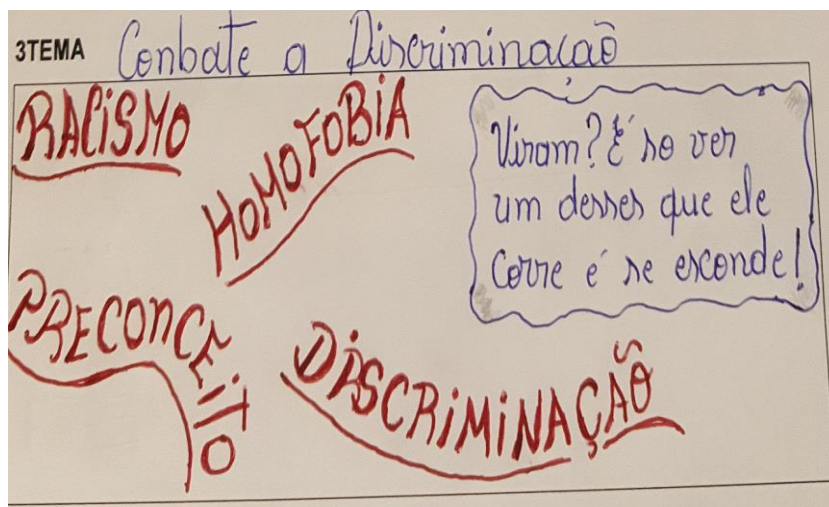 3TEMA Conbate a Discriminacaõ
RACISMO
HOMOFOBIA
Viram? É so ver
um desses que ele
corre é se esconde!
PRECONCEITO
DISCRIMINAÇÃO